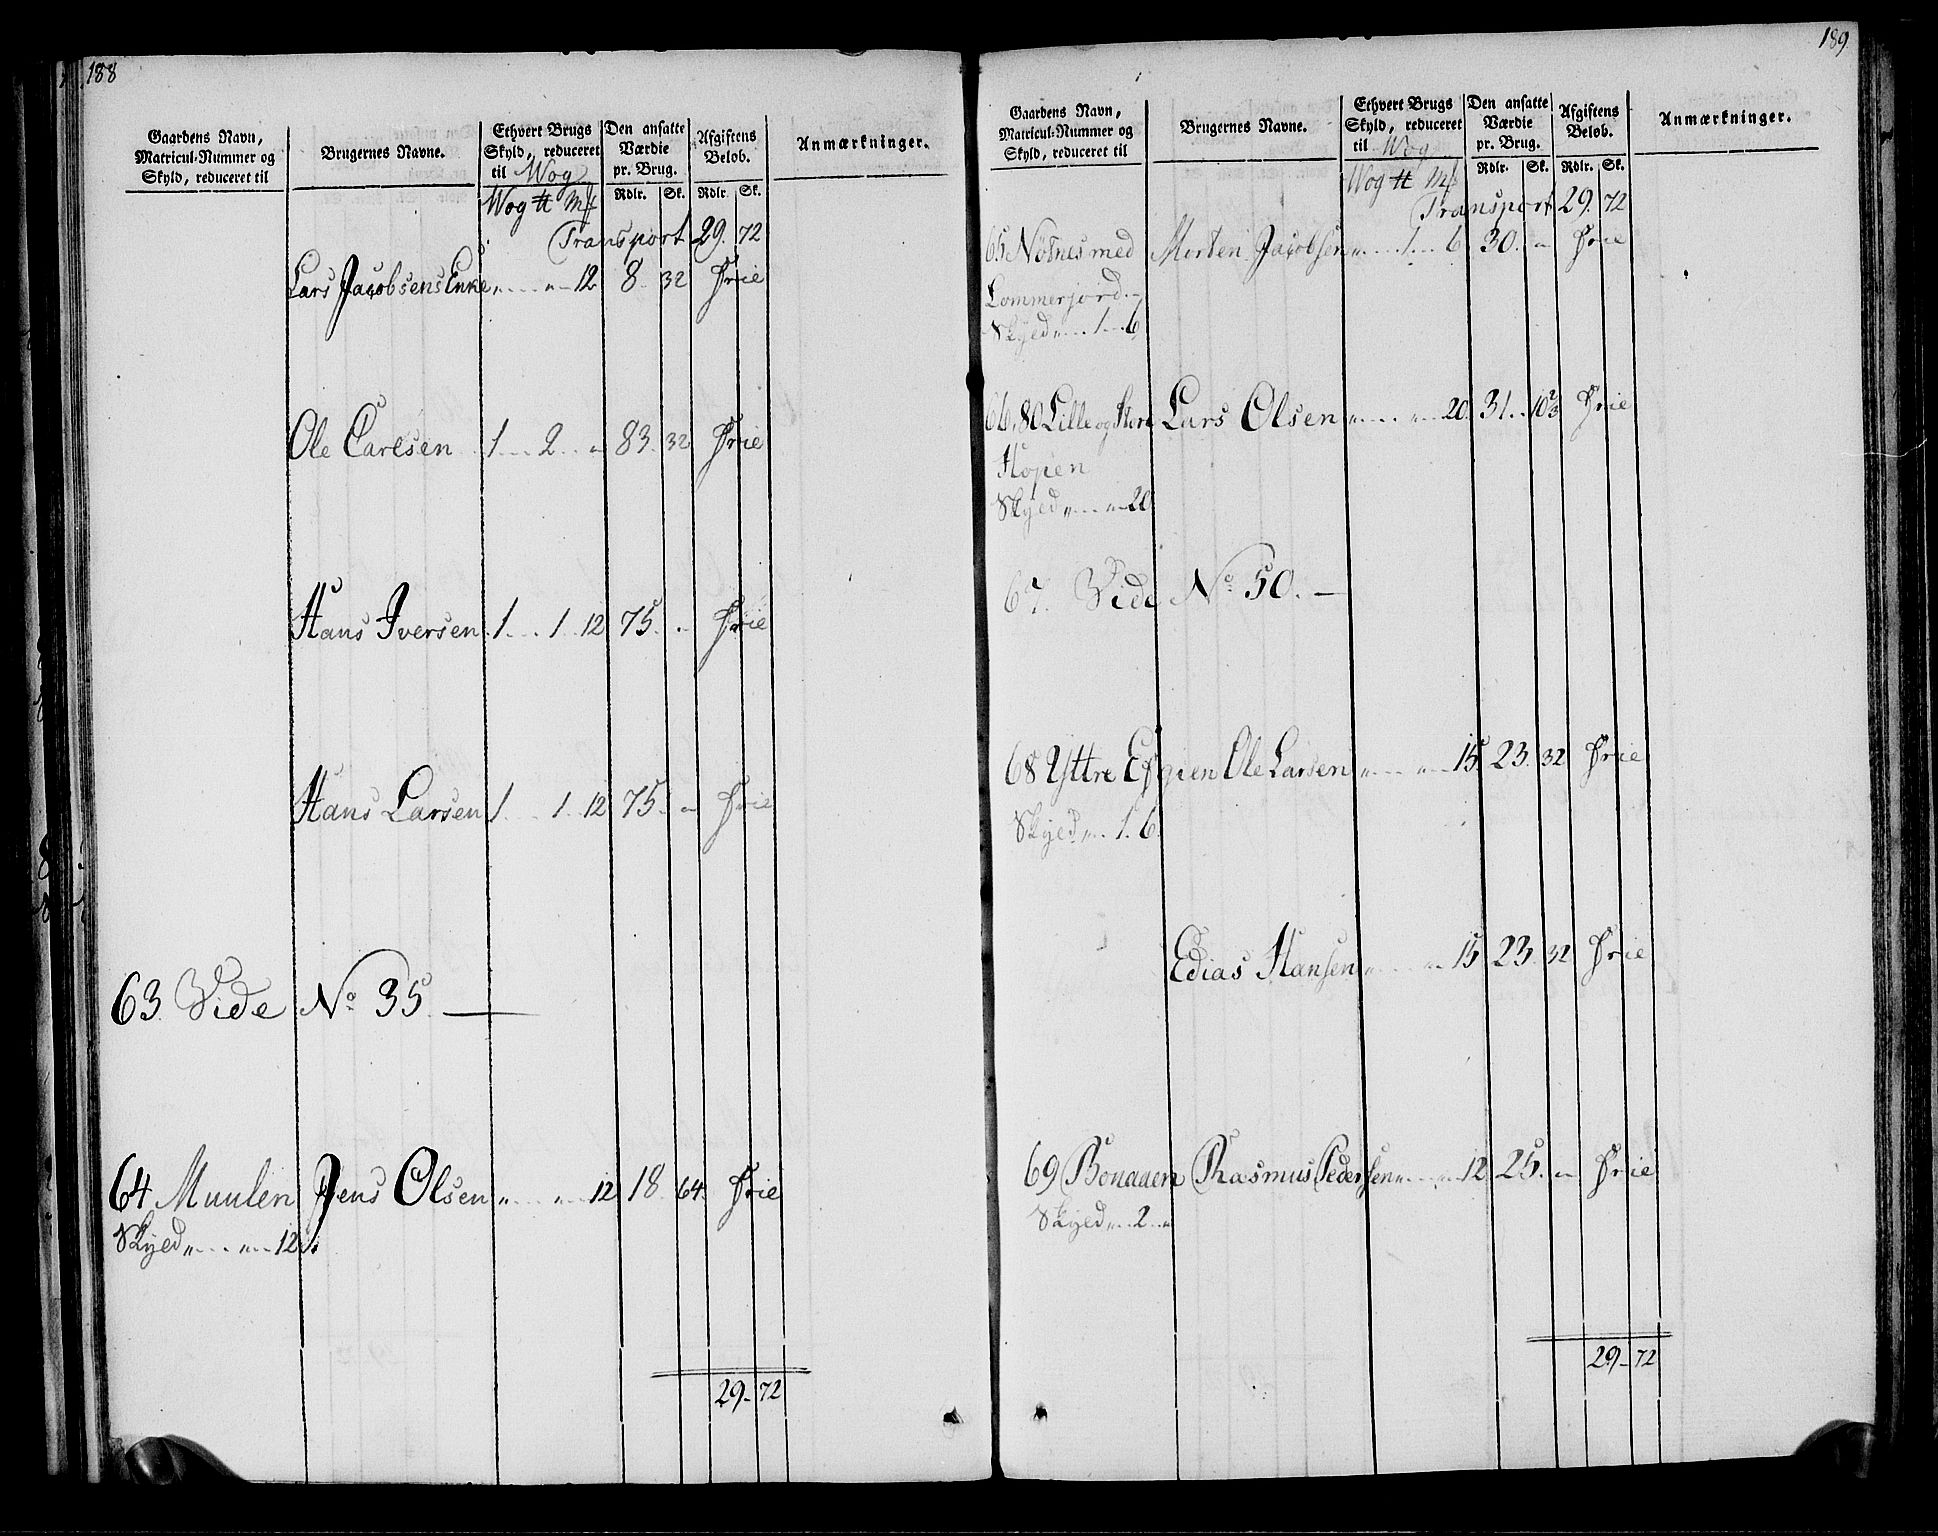 188
Gaardens Navn, Matricul-Nummer og Skyld, reduceret til
Brugernes Navne.
Ethvert Brugs Skyld, reduceret til Wog
Den ansatte Værdie pr. Brug.
Afgiftens Beløb.
Anmærkninger.
Wog ℔ Mk Rdlr. Sk. Rdlr. Sk.
Transport 29. 72
Lars Jacobsens Enke " .... " - 12 8 32 Frie
Ole Carlsen 1 ... 2 .. " 83. 32 Frie
Hans Iversen 1 ... 1 .. 12 75. " Frie
Hans Larsen 1 ... 1 .. 12 75. " Frie
63 Vide No 35. —
64 Muulen Jens Olsen " .... " .. 12 18. 64. Frie
Skyld " .... " .. 12
29 - 72
189
Gaardens Navn, Matricul-Nummer og Skyld, reduceret til
Brugernes Navne.
Ethvert Brugs Skyld, reduceret til Wog
Den ansatte Værdie pr. Brug.
Afgiftens Beløb.
Anmærkninger.
Wog ℔ Mk Rdlr. Sk. Rdlr. Sk.
Transport 29. 72
65 Nötnes med Morten Jacobsen " .... 1 ... 6 30. " Frie
Lommerjord. -
Skyld " ... 1 ... 6
66, 80 Lille og Store Lars Olsen " .... " .. 20. 31. 10 2/3 Frie
Hopen
Skyld " .... " - 20
67. Vide No 50. —
68 Yttre Ole Larsen " .... " .. 15. 23. 32 Frie
Skyld " .. 1. 6.
Edias Hansen " .... " .. 15 23. 32 Frie
69 Bonaaen Rasmus Pedersen " .... " .. 12 25. " Frie
Skyld " .. 2 .. "
29 - 72